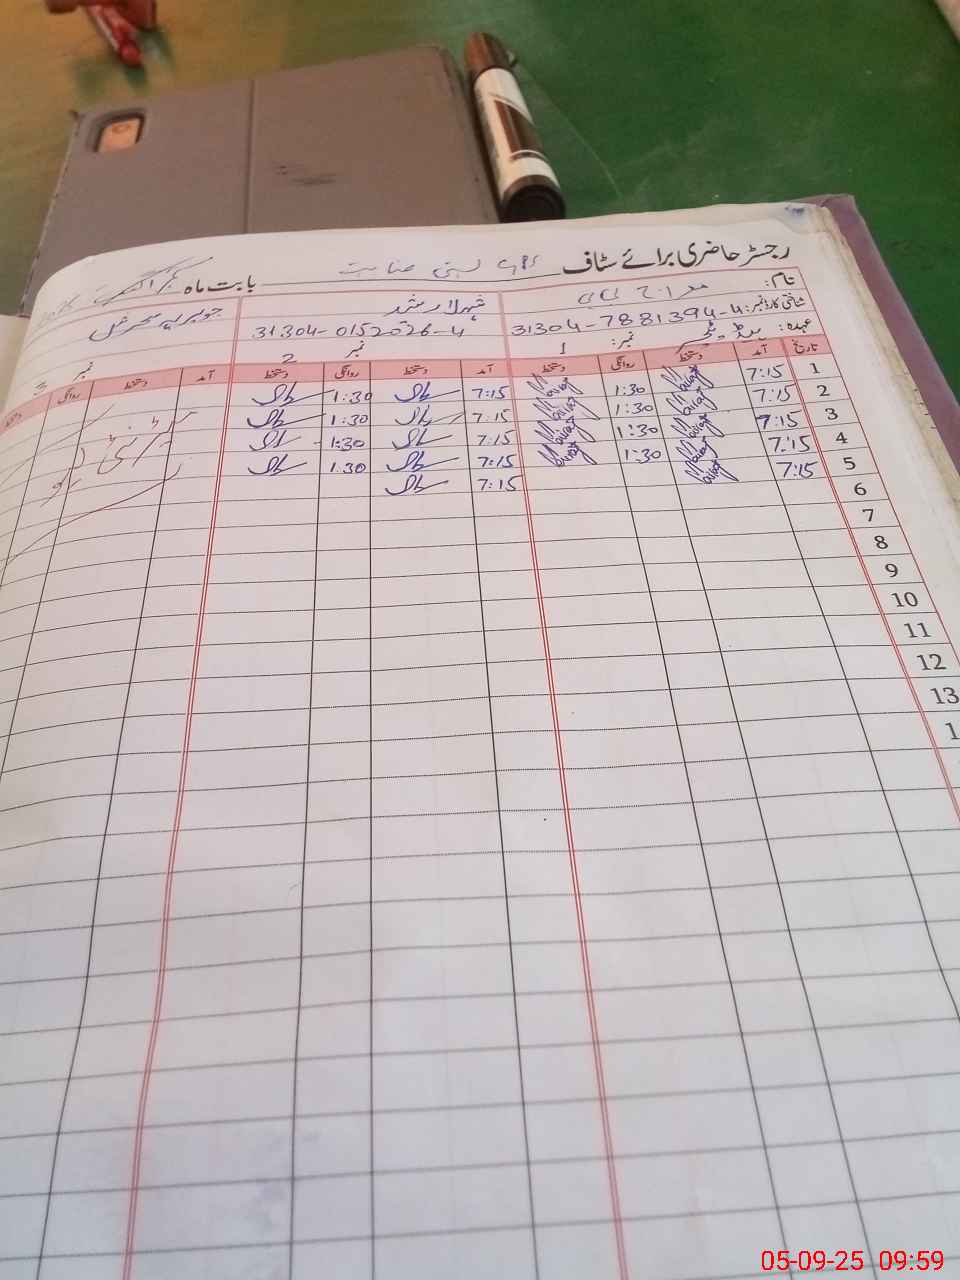 رجسٹر حاضری برائے سٹاف GPS بستی عنایت بابت ماہ
نام: معراج بی بی شہلا رشد
شناختی کارڈ نمبر: 31304-7881394-4 31304-0152026-4
عہدہ: ہیڈ ٹیچر نمبر: 1 نمبر 2 نمبر 3
تاریخ آمد دستخط روانگی دستخط آمد دستخط روانگی دستخط آمد دستخط روانگی
1 7:15 Mairaj 1:30 Mairaj 7:15 1:30
2 7:15 Mairaj 1:30 Mairaj 7:15 1:30
3 7:15 Mairaj 1:30 Mairaj 7:15 1:30
4 7:15 Mairaj 1:30 Mairaj 7:15 1:30
5 7:15 Mairaj 7:15
6
7
8
9
10
11
12
13
1
05-09-25 09:59